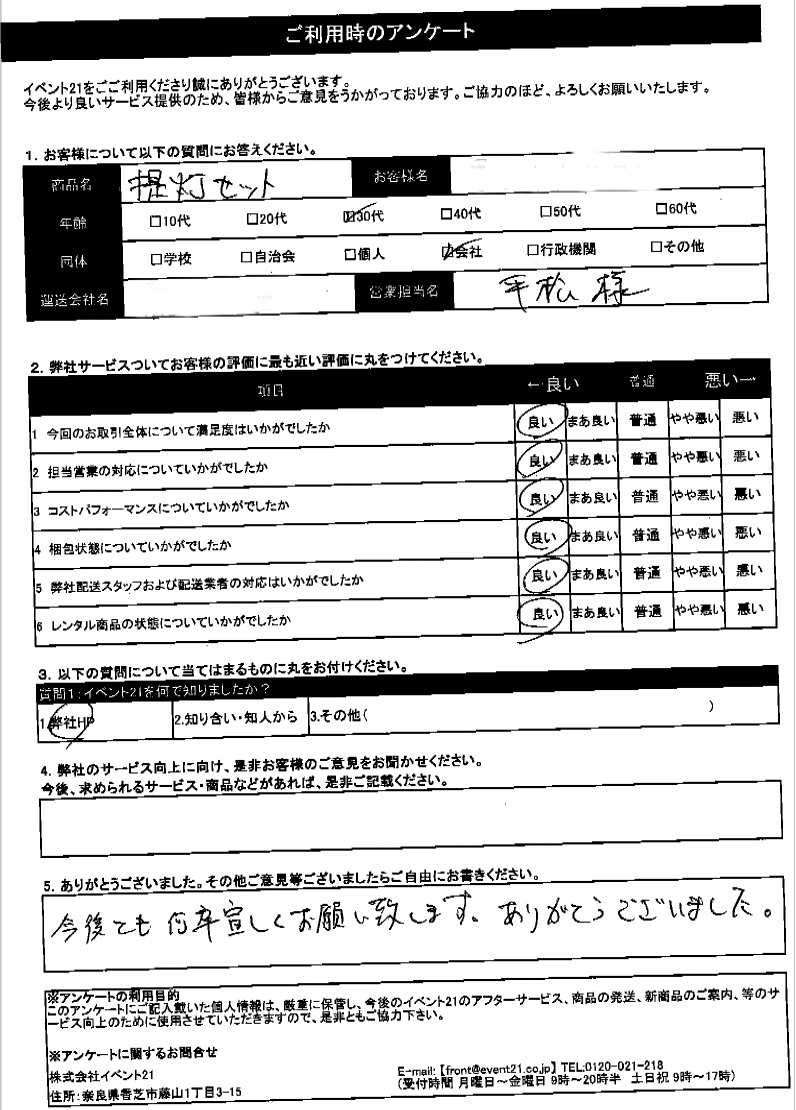 ご利用時のアンケート
イベント21をごご利用くださり誠にありがとうございます。
今後より良いサービス提供のため、皆様からご意見をうかがっております。ご協力のほど、よろしくお願いいたします。
1. お客様について以下の質問にお答えください。
商品名 提灯セット お客様名
年齢 □10代 □20代 ☑30代 □40代 □50代 □60代
団体 □学校 □自治会 □個人 ☑会社 □行政機関 □その他
運送会社名 営業担当名 平松 様
2. 弊社サービスついてお客様の評価に最も近い評価に丸をつけてください。
項目 ←良い 普通 悪い→
1 今回のお取引全体について満足度はいかがでしたか 良い まあ良い 普通 やや悪い 悪い
2 担当営業の対応についていかがでしたか 良い まあ良い 普通 やや悪い 悪い
3 コストパフォーマンスについていかがでしたか 良い まあ良い 普通 やや悪い 悪い
4 梱包状態についていかがでしたか 良い まあ良い 普通 やや悪い 悪い
5 弊社配送スタッフおよび配送業者の対応はいかがでしたか 良い まあ良い 普通 やや悪い 悪い
6 レンタル商品の状態についていかがでしたか 良い まあ良い 普通 やや悪い 悪い
3. 以下の質問について当てはまるものに丸をお付けください。
質問1:イベント21を何で知りましたか?
1.弊社HP 2.知り合い・知人から 3.その他( )
4. 弊社のサービス向上に向け、是非お客様のご意見をお聞かせください。
今後、求められるサービス・商品などがあれば、是非ご記載ください。
5. ありがとうございました。その他ご意見等ございましたらご自由にお書きください。
今後とも何卒宜しくお願い致します。ありがとうございました。
※アンケートの利用目的
このアンケートにご記入戴いた個人情報は、厳重に保管し、今後のイベント21のアフターサービス、商品の発送、新商品のご案内、等のサ
ービス向上のために使用させていただきますので、是非ともご協力下さい。
※アンケートに関するお問合せ
株式会社イベント21 E-mail:【front@event21.co.jp】 TEL:0120-021-218
住所:奈良県香芝市藤山1丁目3-15 (受付時間 月曜日～金曜日 9時～20時半 土日祝 9時～17時)